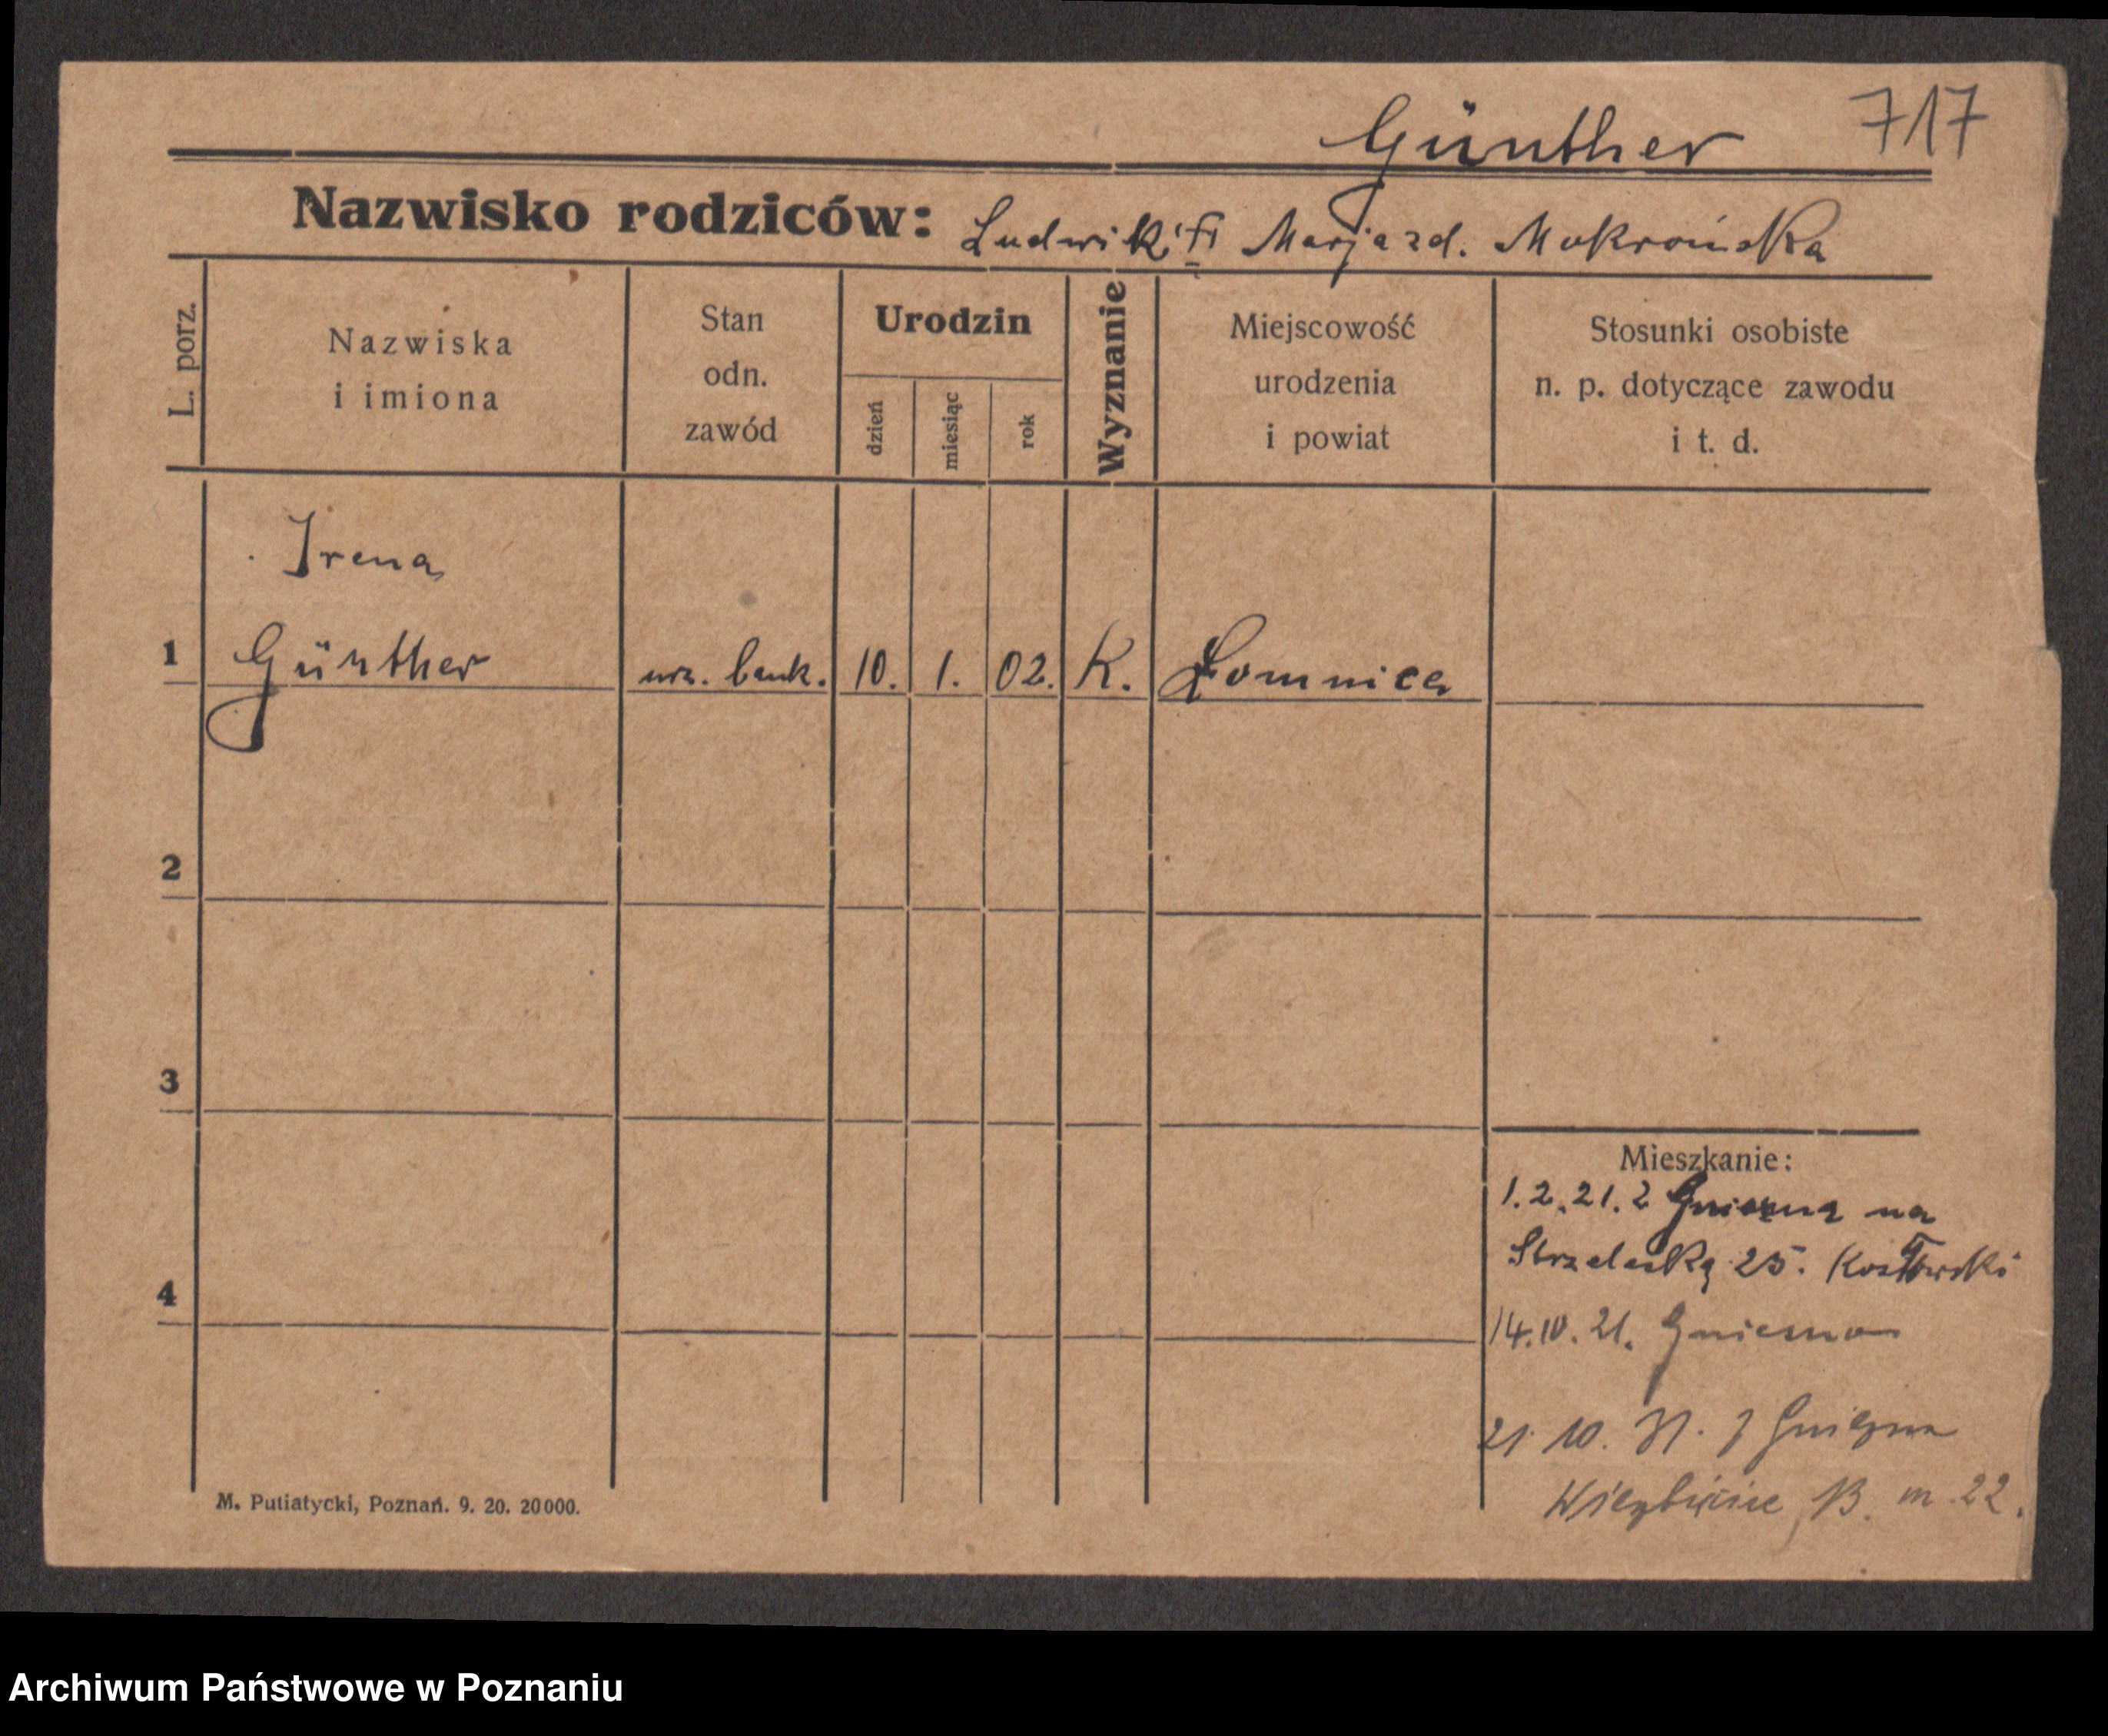 Günther 717
Nazwisko rodziców: Ludwik i Marja zd. Mokrońska
L. porz.
Nazwiska
i imiona
Stan
odn.
zawód
Urodzin
dzień
miesiąc
rok
Wyznanie
Miejscowość
urodzenia
i powiat
Stosunki osobiste
n. p. dotyczące zawodu
i t. d.
Irena
1 Günther urz. bank. 10. 1. 02. K. Łomnica
2
3
Mieszkanie:
1.2.21. z Gniezna na
Strzelecką 25. Kozłowski
4
14.IV.21. Gniezno
21 10. 31. z Gniezna
13. m. 22.
M. Putiatycki, Poznań. 9. 20. 20000.
Archiwum Państwowe w Poznaniu